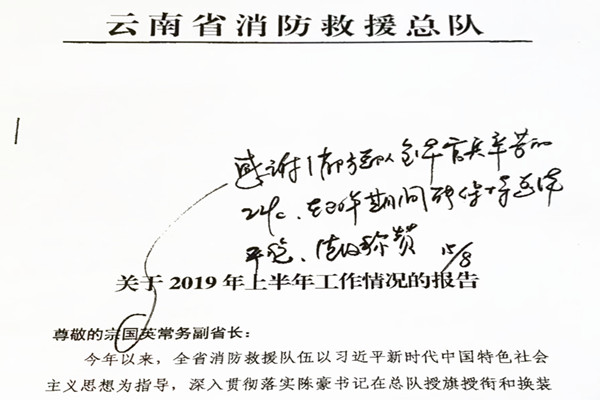 云南省消防救援总队
感谢消防救援队全军官兵辛苦的
工作、
平稳、值得称赞 15/8
关于 2019 年上半年工作情况的报告
尊敬的宗国英常务副省长：
今年以来，全省消防救援队伍以习近平新时代中国特色社会
主义思想为指导，深入贯彻落实陈豪书记在总队授旗授衔和换装